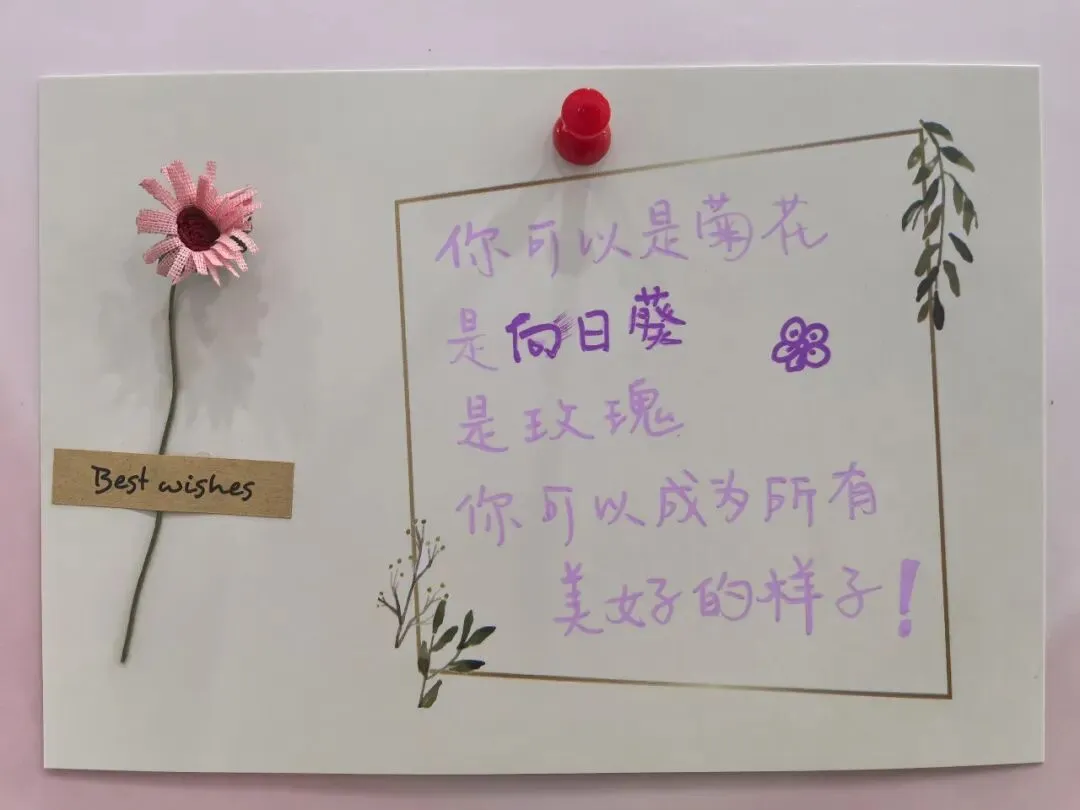 Best wishes
你可以是菊花
是向日葵
是玫瑰
你可以成为所有
美好的样子!